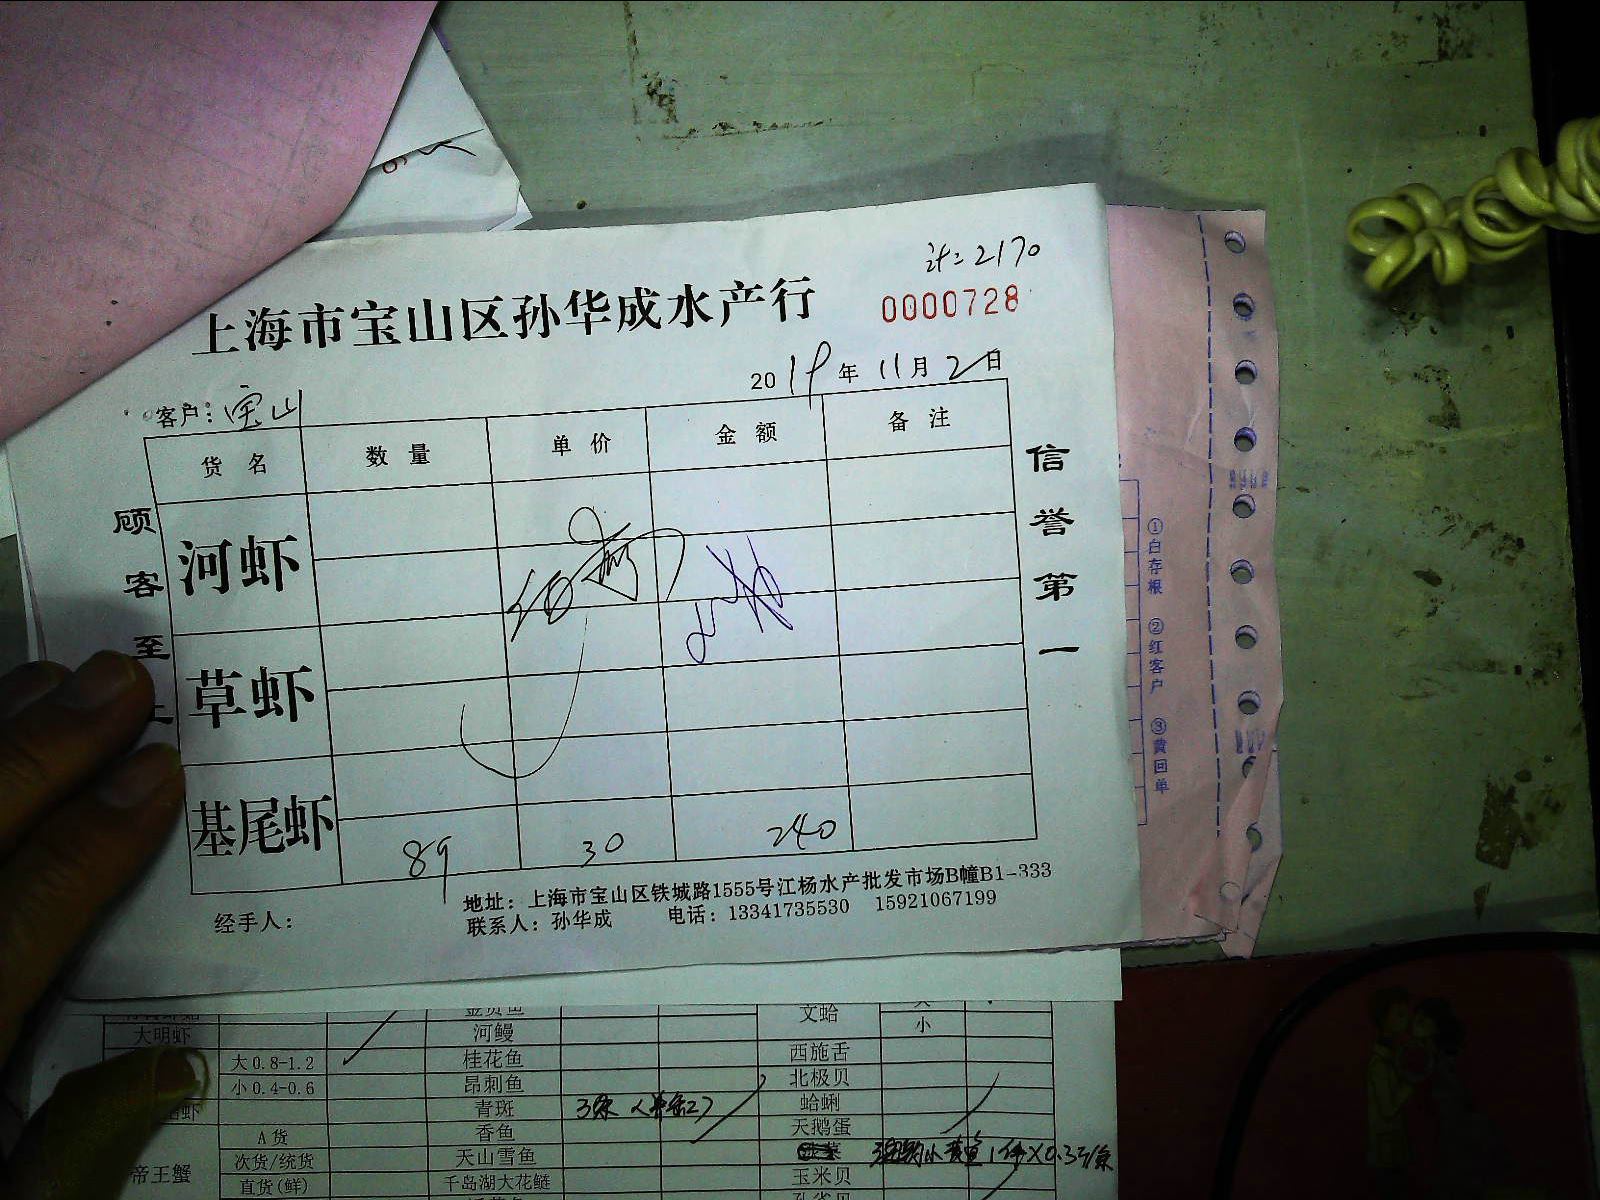 计=2170
上海市宝山区孙华成水产行
0000728
2019年11月2日
客户：宝山
货名 数量 单价 金额 备注
河虾
草虾
基尾虾 89 30 240
顾客至上
信誉第一
地址：上海市宝山区铁城路1555号江杨水产批发市场B幢B1-333
经手人： 联系人：孙华成 电话：13341735530 15921067199
①白存根 ②红客户 ③黄回单
文蛤
大明虾 河鳗 小
大0.8-1.2 桂花鱼 西施舌
小0.4-0.6 昂刺鱼 北极贝
青斑 3条 蛤蜊
A货 香鱼 天鹅蛋
帝王蟹 次货/统货 天山雪鱼
直货(鲜) 千岛湖大花鲢 玉米贝